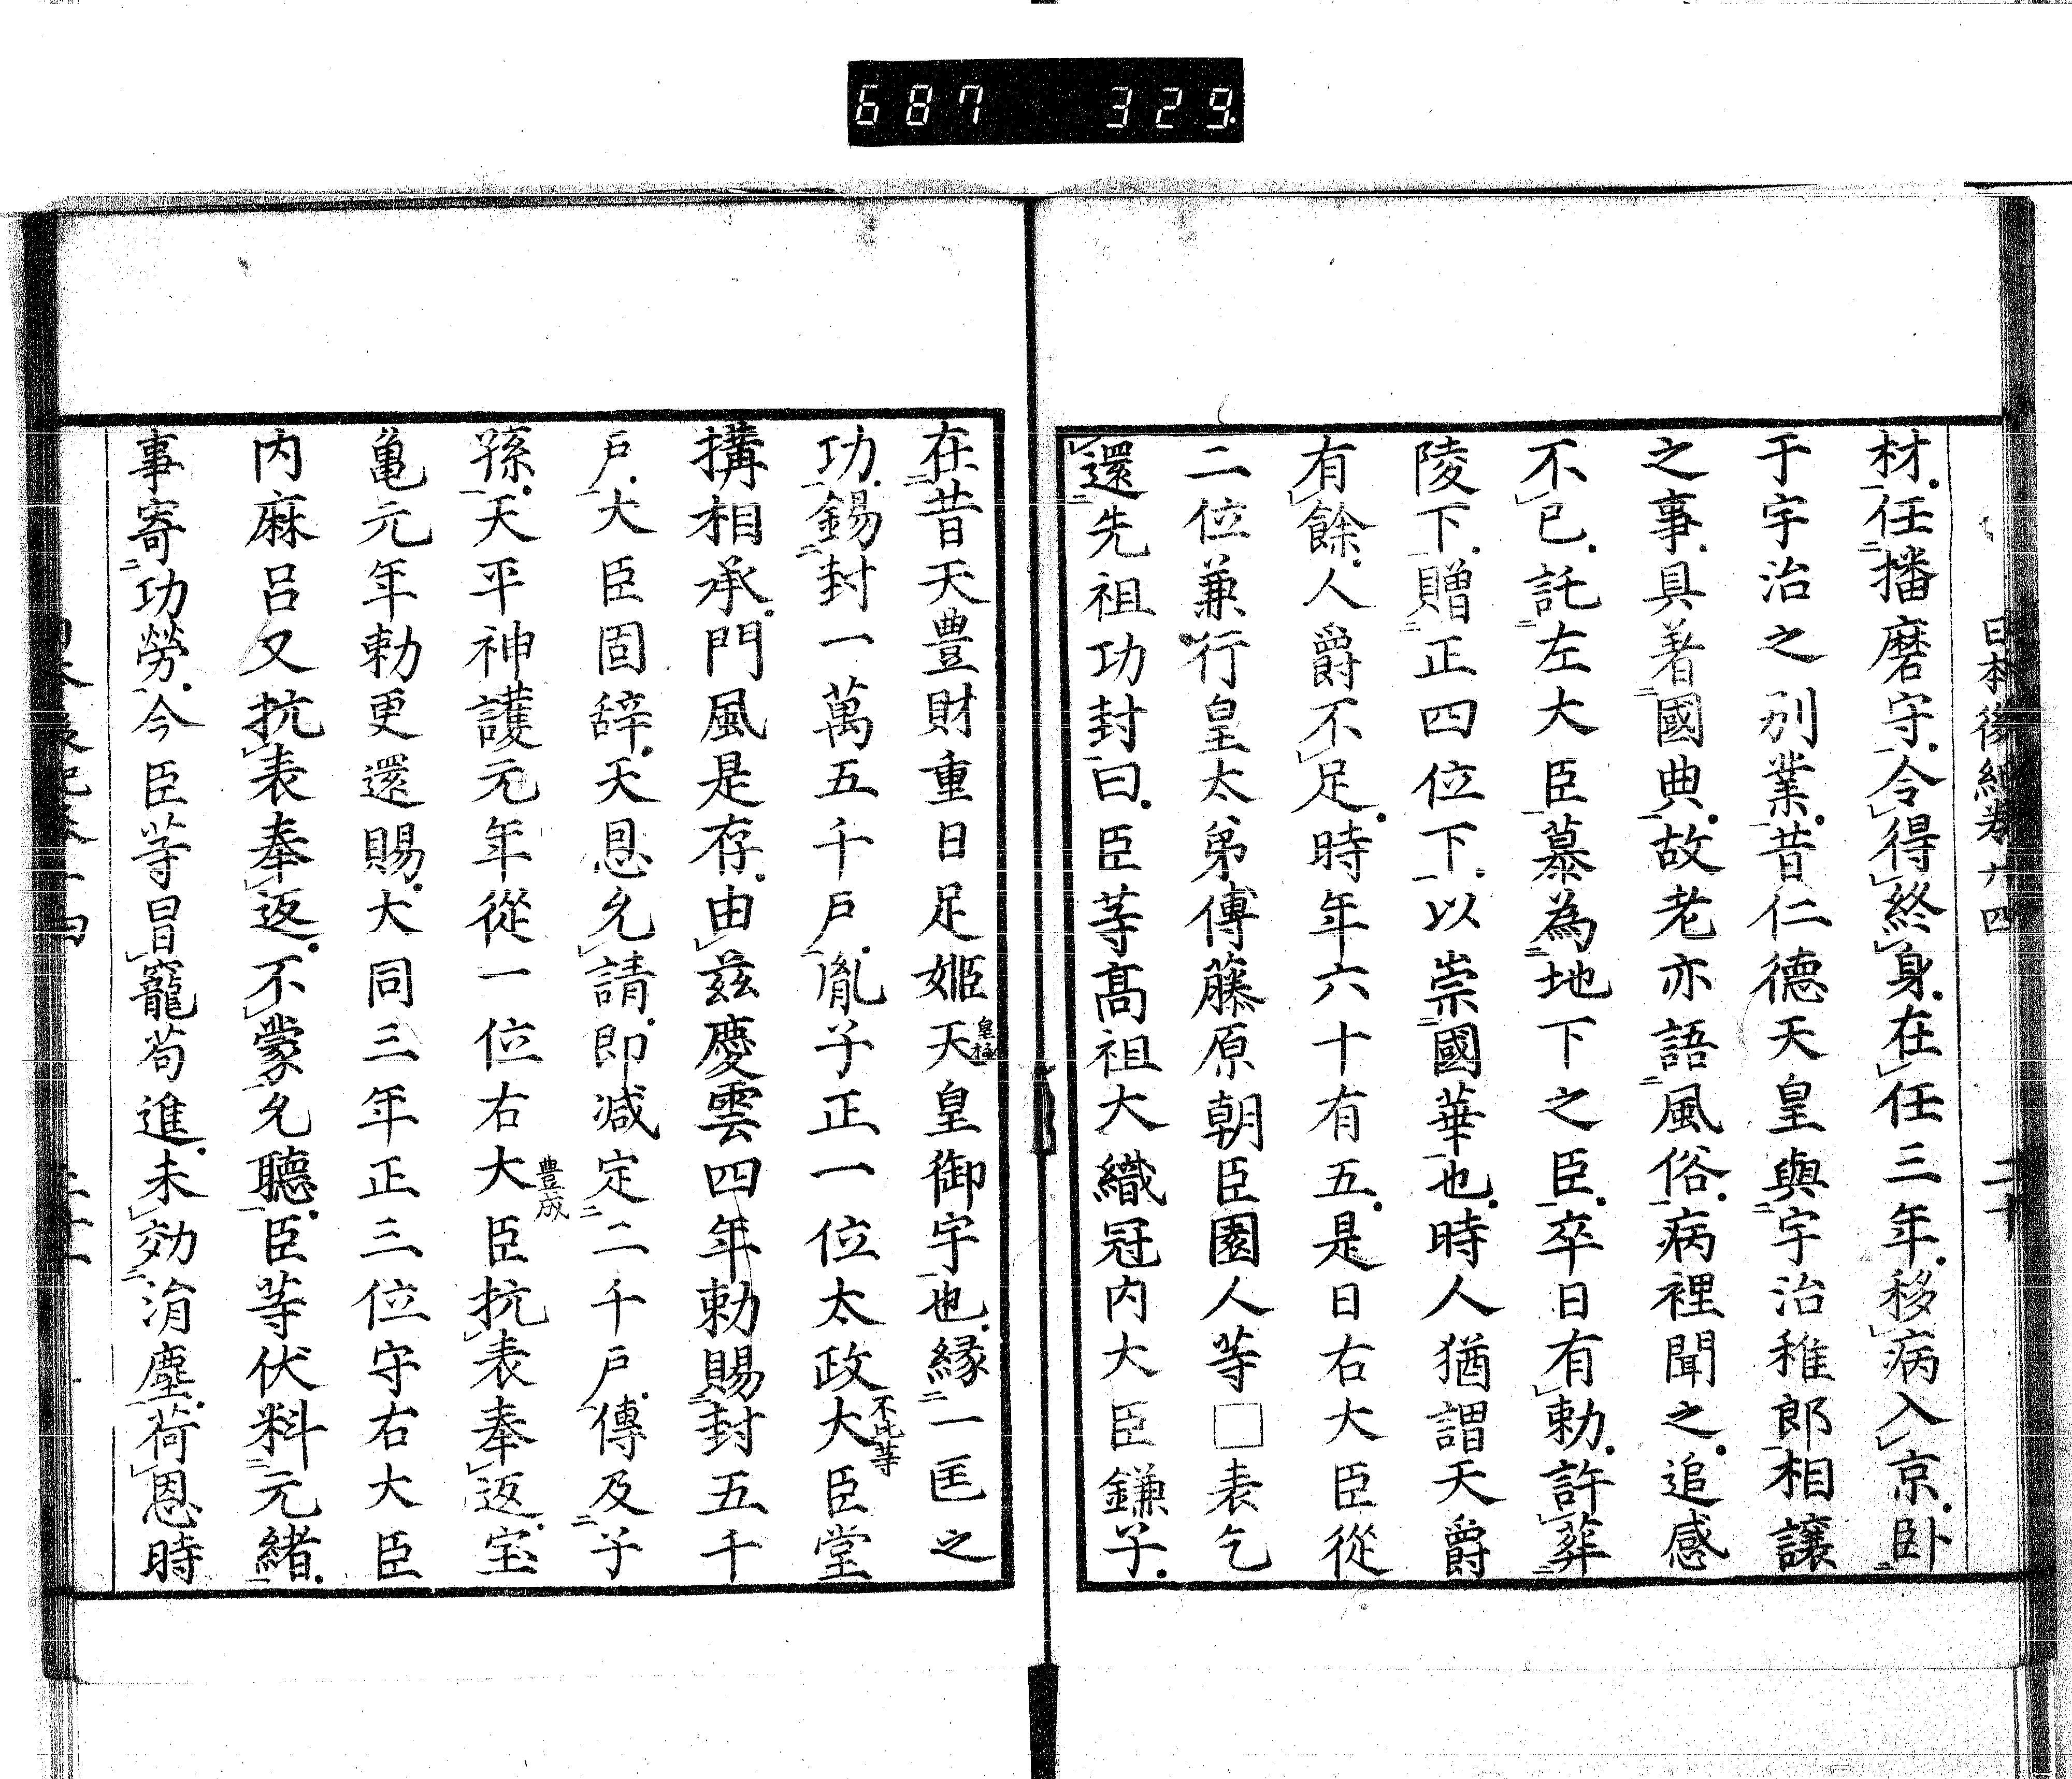 687 329.
日本後紀卷廿四 二十
材任播磨守令得終身在任三年移病入京卧
于宇治之別業昔仁德天皇與宇治稚郎相讓
之事具著國典故老亦語風俗病裡聞之追感
不已託左大臣慕為地下之臣卒日有勅許葬
陵下贈正四位下以崇國華也時人猶謂天爵
有餘人爵不足時年六十有五是日右大臣從
二位兼行皇太弟傅藤原朝臣園人等□表乞
還先祖功封曰臣等髙祖大織冠内大臣鎌子
在昔天豊財重日足姬天皇御宇也縁一匡之
皇極
功錫封一萬五千戸胤子正一位太政大臣堂
不比等
搆相承門風是存由茲慶雲四年勅賜封五千
戸大臣固辞天恩允請即减定二千戸傳及子
孫天平神護元年從一位右大臣抗表奉返宝
豊成
亀元年勅更還賜大同三年正三位守右大臣
内麻呂又抗表奉返不蒙允聽臣等伏料元緒
事寄功勞今臣等冒寵苟進未効涓塵荷恩時